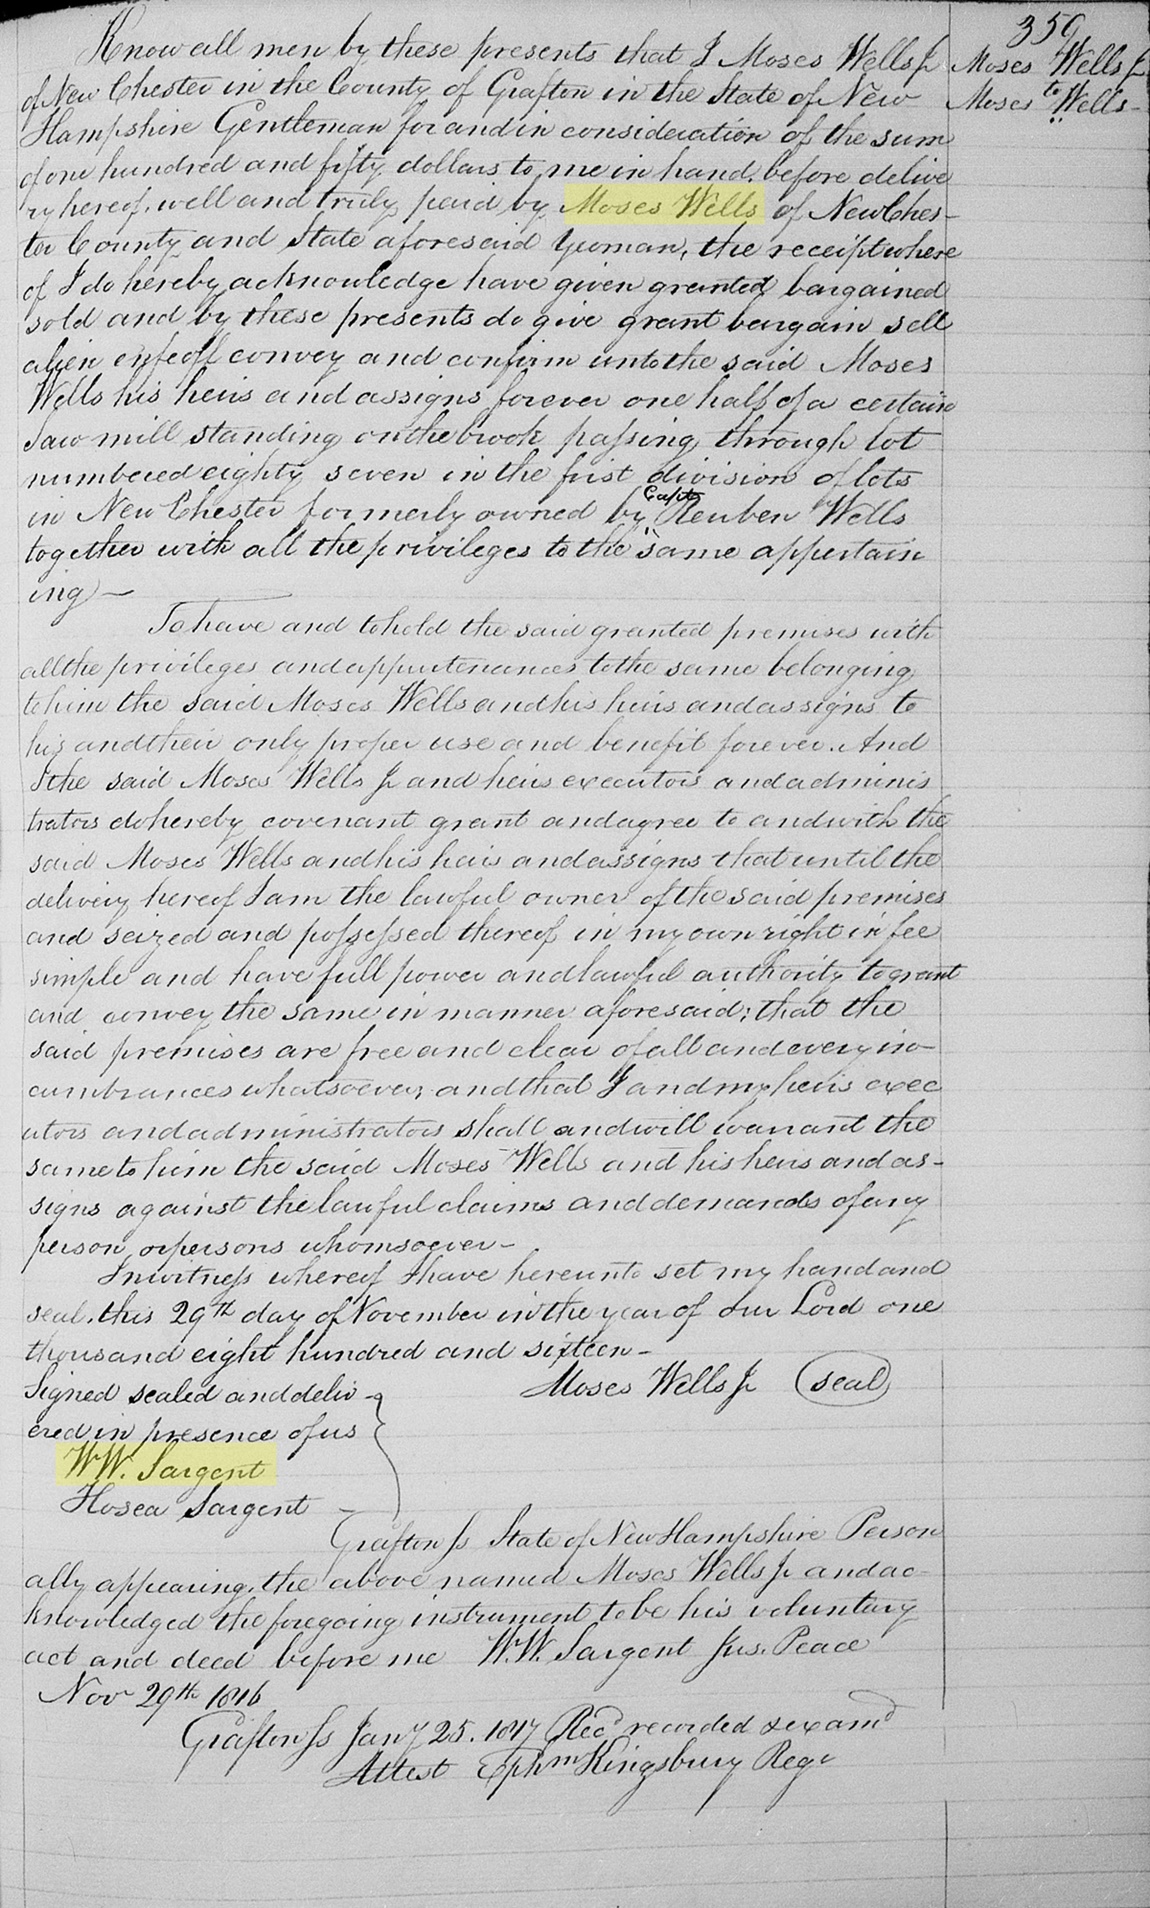 359
Moses Wells Jr
to
Moses Wells
Know all men by these presents that I Moses Wells Jr
of New Chester in the County of Grafton in the State of New
Hampshire Gentleman for and in consideration of the sum
of one hundred and fifty dollars to me in hand before delive
ry hereof, well and truly paid by Moses Wells of New Ches-
ter County and State aforesaid Yeoman, the receipt where
of I do hereby acknowledge have given granted bargained
sold and by these presents do give grant bargain sell
alien enfeoff convey and confirm unto the said Moses
Wells his heirs and assigns forever one half of a certain
Saw mill standing on the brook passing through lot
numbered eighty seven in the first division of lots
in New Chester formerly owned by Capt Reuben Wells
together with all the privileges to the same appertain
ing —
To have and to hold the said granted premises with
all the privileges and appurtenances to the same belonging
to him the said Moses Wells and his heirs and assigns to
his and their only proper use and benefit forever. And
I the said Moses Wells Jr and heirs executors and adminis
trators do hereby covenant grant and agree to and with the
said Moses Wells and his heirs and assigns that until the
delivery hereof I am the lawful owner of the said premises
and seized and possessed thereof in my own right in fee
simple and have full power and lawful authority to grant
and convey the same in manner aforesaid; that the
said premises are free and clear of all and every in-
cumbrances whatsoever; and that I and my heirs exec
utors and administrators shall and will warrant the
same to him the said Moses Wells and his heirs and as-
signs against the lawful claims and demands of any
person or persons whomsoever -
In witness whereof I have hereunto set my hand and
seal, this 29th day of November in the year of our Lord one
thousand eight hundred and sixteen -
Signed sealed and deliv- Moses Wells Jr seal
ered in presence of us
W.W. Sargent
Hosea Sargent
Grafton Ss State of New Hampshire Person
ally appearing, the above named Moses Wells Jr and ac-
knowledged the foregoing instrument to be his voluntary
act and deed before me W.W. Sargent Jus. Peace
Nov 29th 1816
Grafton Ss Jany 25. 1817 Recd recorded & examd
Attest Ephm Kingsbury Regr